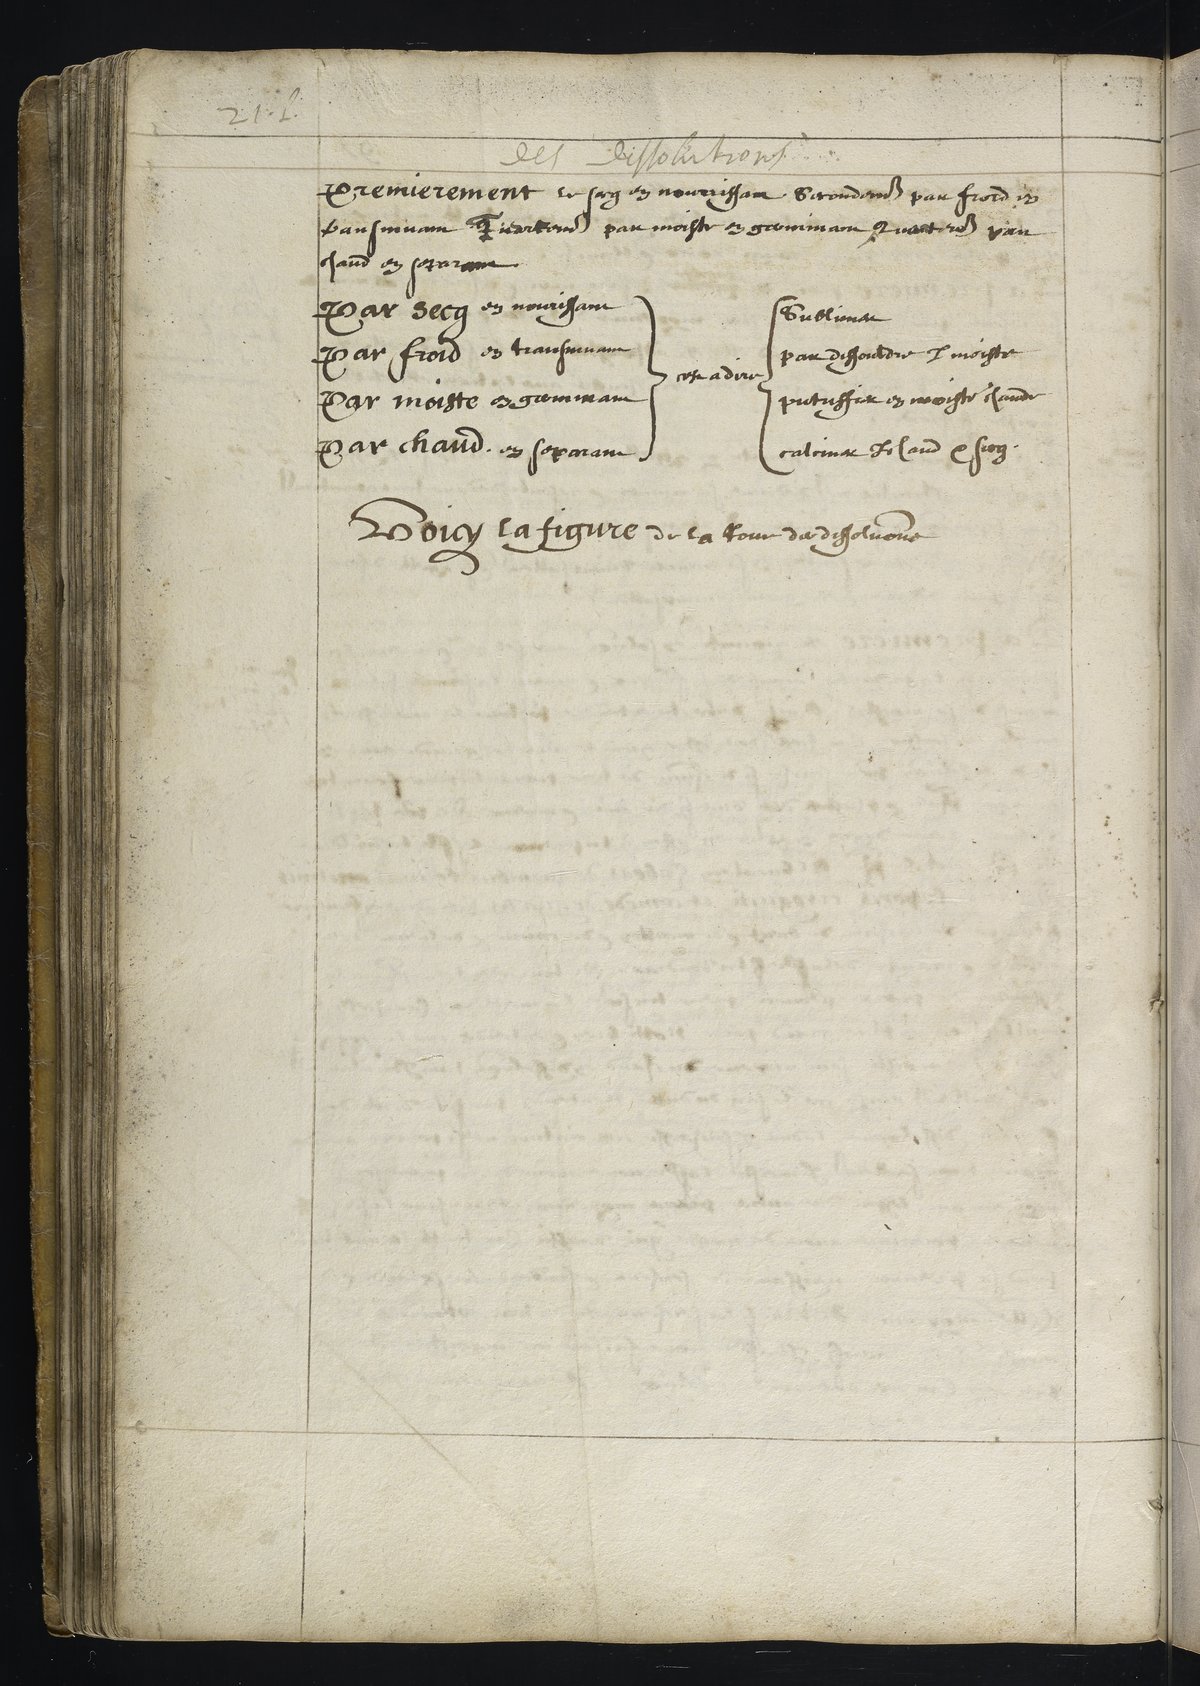 21.f.
Des Dissolutions
Premierement le secg en nourrissant Secondemt par froid en
transmuant Tiercemt par moiste en gommant Quartemt par
chaud en separant
Par Secg en nourissant
Par froid en transmuant
Par moiste en gommant
Par chaud. en separant
cest a dire
Sublimer
par dissouldre moiste
putrifier en moiste chaude
calciner chaud & secg.
Voicy la figure de la tour de dissolutions